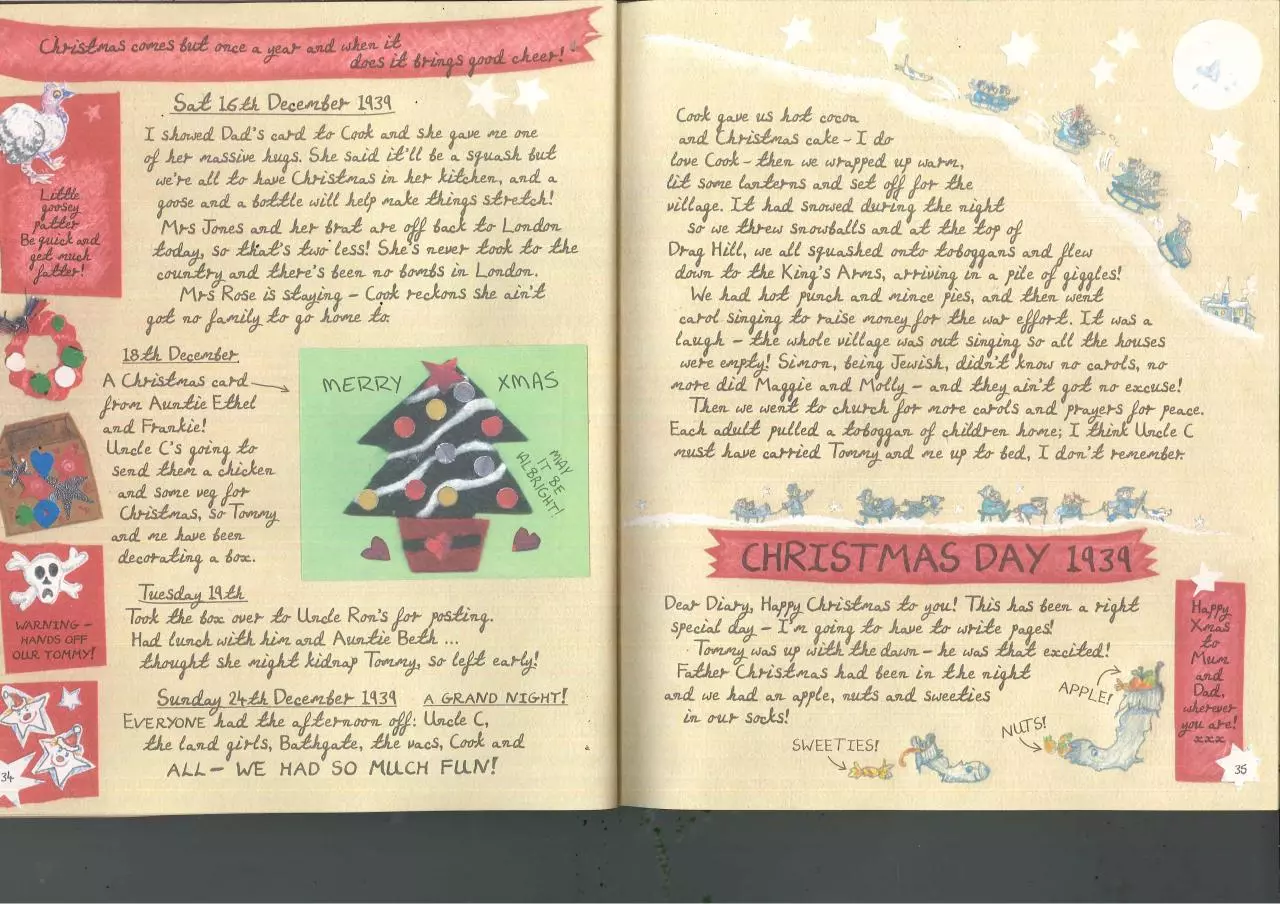 Christmas comes but once a year and when it
does it brings good cheer!
Sat 16th December 1939
I showed Dad's card to Cook and she gave me one
of her massive hugs. She said it'll be a squash but
we're all to have Christmas in her kitchen, and a
goose and a bottle will help make things stretch!
Mrs Jones and her brat are off back to London
today, so that's two less! She's never took to the
country and there's been no bombs in London.
Mrs Rose is staying – Cook reckons she ain't
got no family to go home to.
Little
goosey
patter
Be quick and
get much
fatter!
18th December
A Christmas card
from Auntie Ethel
and Frankie!
Uncle C's going to
send them a chicken
and some veg for
Christmas, so Tommy
and me have been
decorating a box.
MERRY XMAS
MAY
IT BE
ALBRIGHT!
Tuesday 19th
Took the box over to Uncle Ron's for posting.
Had lunch with him and Auntie Beth ...
thought she might kidnap Tommy, so left early!
WARNING –
HANDS OFF
OUR TOMMY!
Sunday 24th December 1939 A GRAND NIGHT!
EVERYONE had the afternoon off: Uncle C,
the land girls, Bathgate, the vacs, Cook and
ALL – WE HAD SO MUCH FUN!
34
Cook gave us hot cocoa
and Christmas cake – I do
love Cook – then we wrapped up warm,
lit some lanterns and set off for the
village. It had snowed during the night
so we threw snowballs and at the top of
Drag Hill, we all squashed onto toboggans and flew
down to the King's Arms, arriving in a pile of giggles!
We had hot punch and mince pies, and then went
carol singing to raise money for the war effort. It was a
laugh – the whole village was out singing so all the houses
were empty! Simon, being Jewish, didn't know no carols, no
more did Maggie and Molly – and they ain't got no excuse!
Then we went to church for more carols and prayers for peace.
Each adult pulled a toboggan of children home; I think Uncle C
must have carried Tommy and me up to bed, I don't remember.
CHRISTMAS DAY 1939
Dear Diary, Happy Christmas to you! This has been a right
special day – I'm going to have to write pages!
Tommy was up with the dawn – he was that excited!
Father Christmas had been in the night
and we had an apple, nuts and sweeties
in our socks!
SWEETIES!
NUTS!
APPLE!
Happy
Xmas
to
Mum
and
Dad,
wherever
you are!
xxx
35